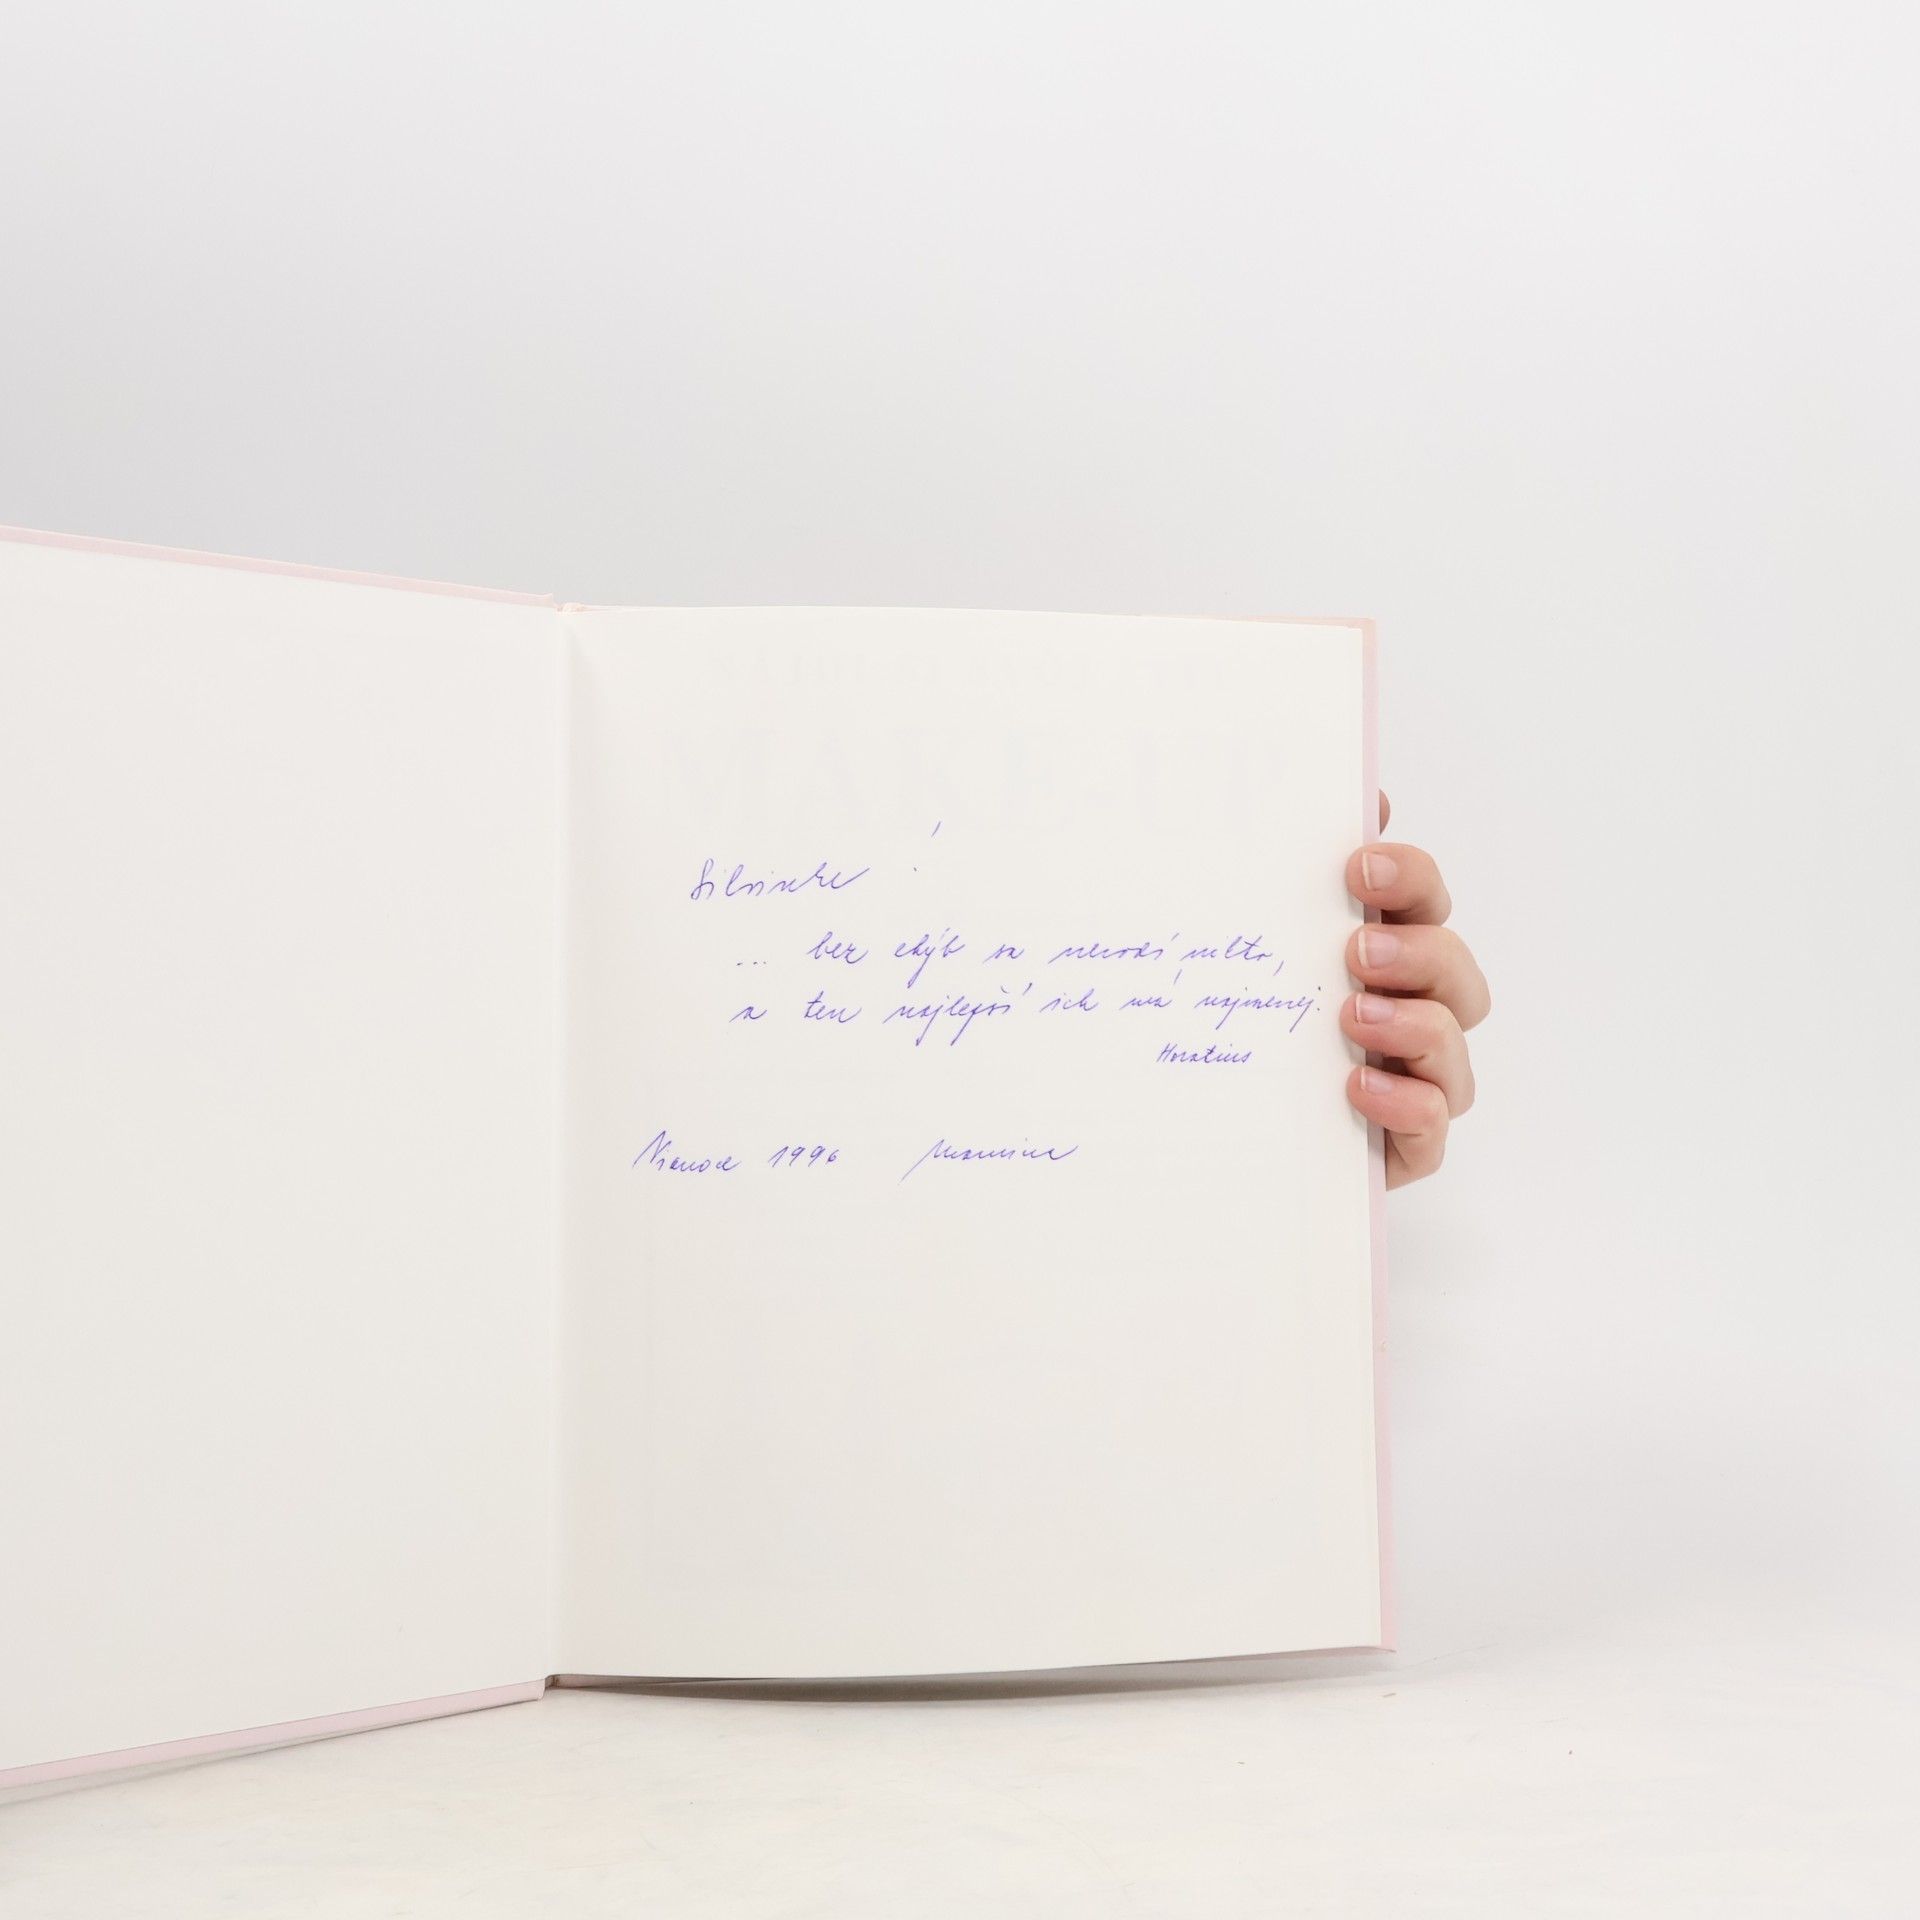 Silvinke!
... bez chýb sa nerodí nikto,
a ten najlepší ich má najmenej.
Horatius
Vianoce 1996 Mamina